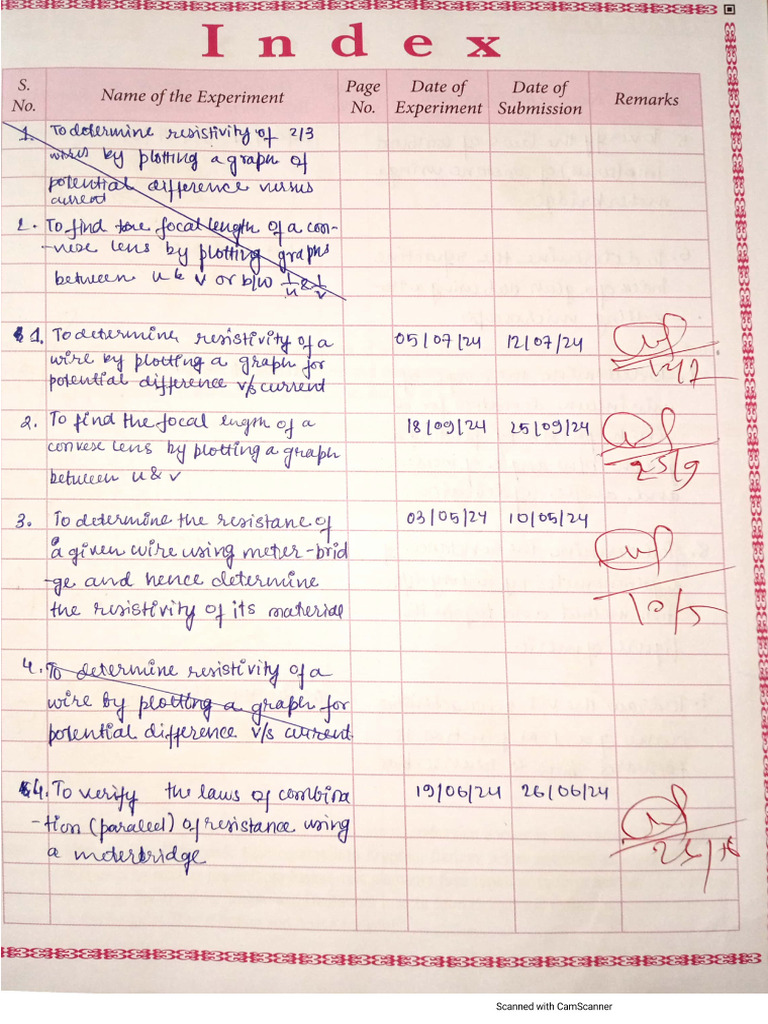 Index
S. No.
Name of the Experiment
Page No.
Date of Experiment
Date of Submission
Remarks
1. To determine resistivity of 2/3
wires by plotting a graph of
potential difference versus
current
2. To find the focal length of a con-
-vexe lens by plotting graphs
between u & v or b/w 1/u & 1/v
1. To determine resistivity of a 05/07/24 12/07/24
wire by plotting a graph for
potential difference v/s current
2. To find the focal length of a 18/09/24 25/09/24
convexe lens by plotting a graph 25/9
between u & v
3. To determine the resistance of 03/05/24 10/05/24
a given wire using meter-brid
-ge and hence determine
the resistivity of its material 10/5
4. To determine resistivity of a
wire by plotting a graph for
potential difference v/s current
4. To verify the laws of combina 19/06/24 26/06/24
-tion (parallel) of resistance using
a meterbridge
Scanned with CamScanner